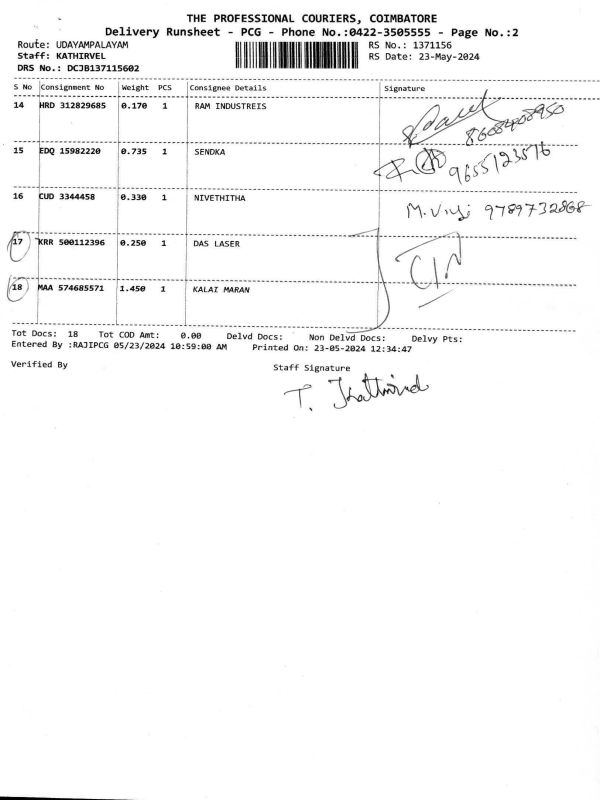 THE PROFESSIONAL COURIERS, COIMBATORE
Delivery Runsheet - PCG - Phone No.:0422-3505555 - Page No.:2
Route: UDAYAMPALAYAM RS No.: 1371156
Staff: KATHIRVEL RS Date: 23-May-2024
DRS No.: DCJB137115602
S No Consignment No Weight PCS Consignee Details Signature
14 HRD 312829685 0.170 1 RAM INDUSTREIS
8608408950
15 EDQ 15982220 0.735 1 SENDKA 9655123516
16 CUD 3344458 0.330 1 NIVETHITHA M. Viji 9789732868
17 KRR 500112396 0.250 1 DAS LASER
18 MAA 574685571 1.450 1 KALAI MARAN
Tot Docs: 18 Tot COD Amt: 0.00 Delvd Docs: Non Delvd Docs: Delvy Pts:
Entered By :RAJIPCG 05/23/2024 10:59:00 AM Printed On: 23-05-2024 12:34:47
Verified By Staff Signature
T. Kathirvel